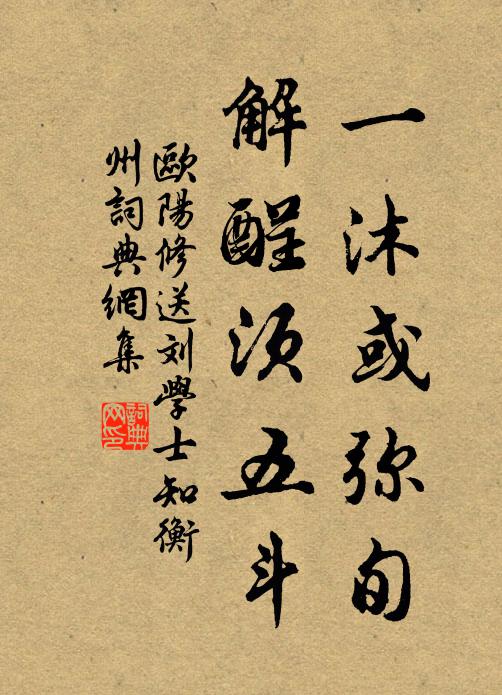 一沐或弥旬
解酲须五斗
歐陽修送刘學士知衡
州詞典網集
詞典
网印